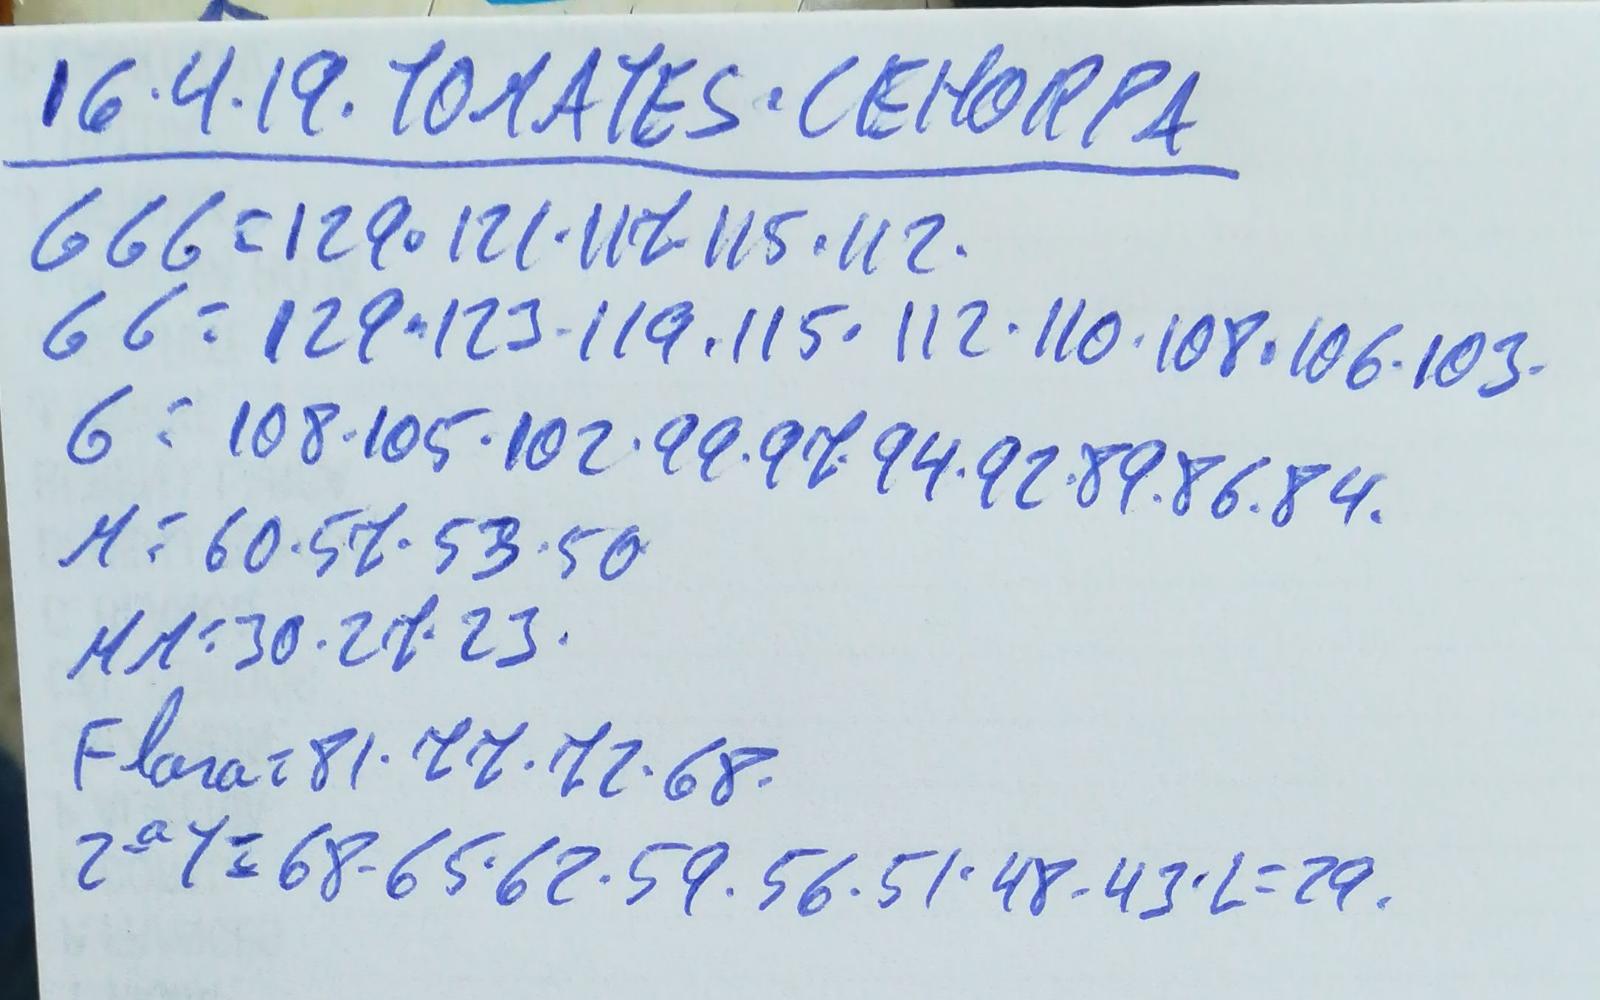 16.4.19. TOMATES. CEHORPA
GGG=129.121.117.115.112.
GG=129.123.119.115.112.110.108.106.103.
G=108.105.102.99.97.94.92.89.86.84.
M=60.57.53.50
MM=30.27.23.
Flora=81.77.72.68.
2ªT=68.65.62.59.56.51.48.43.L=29.